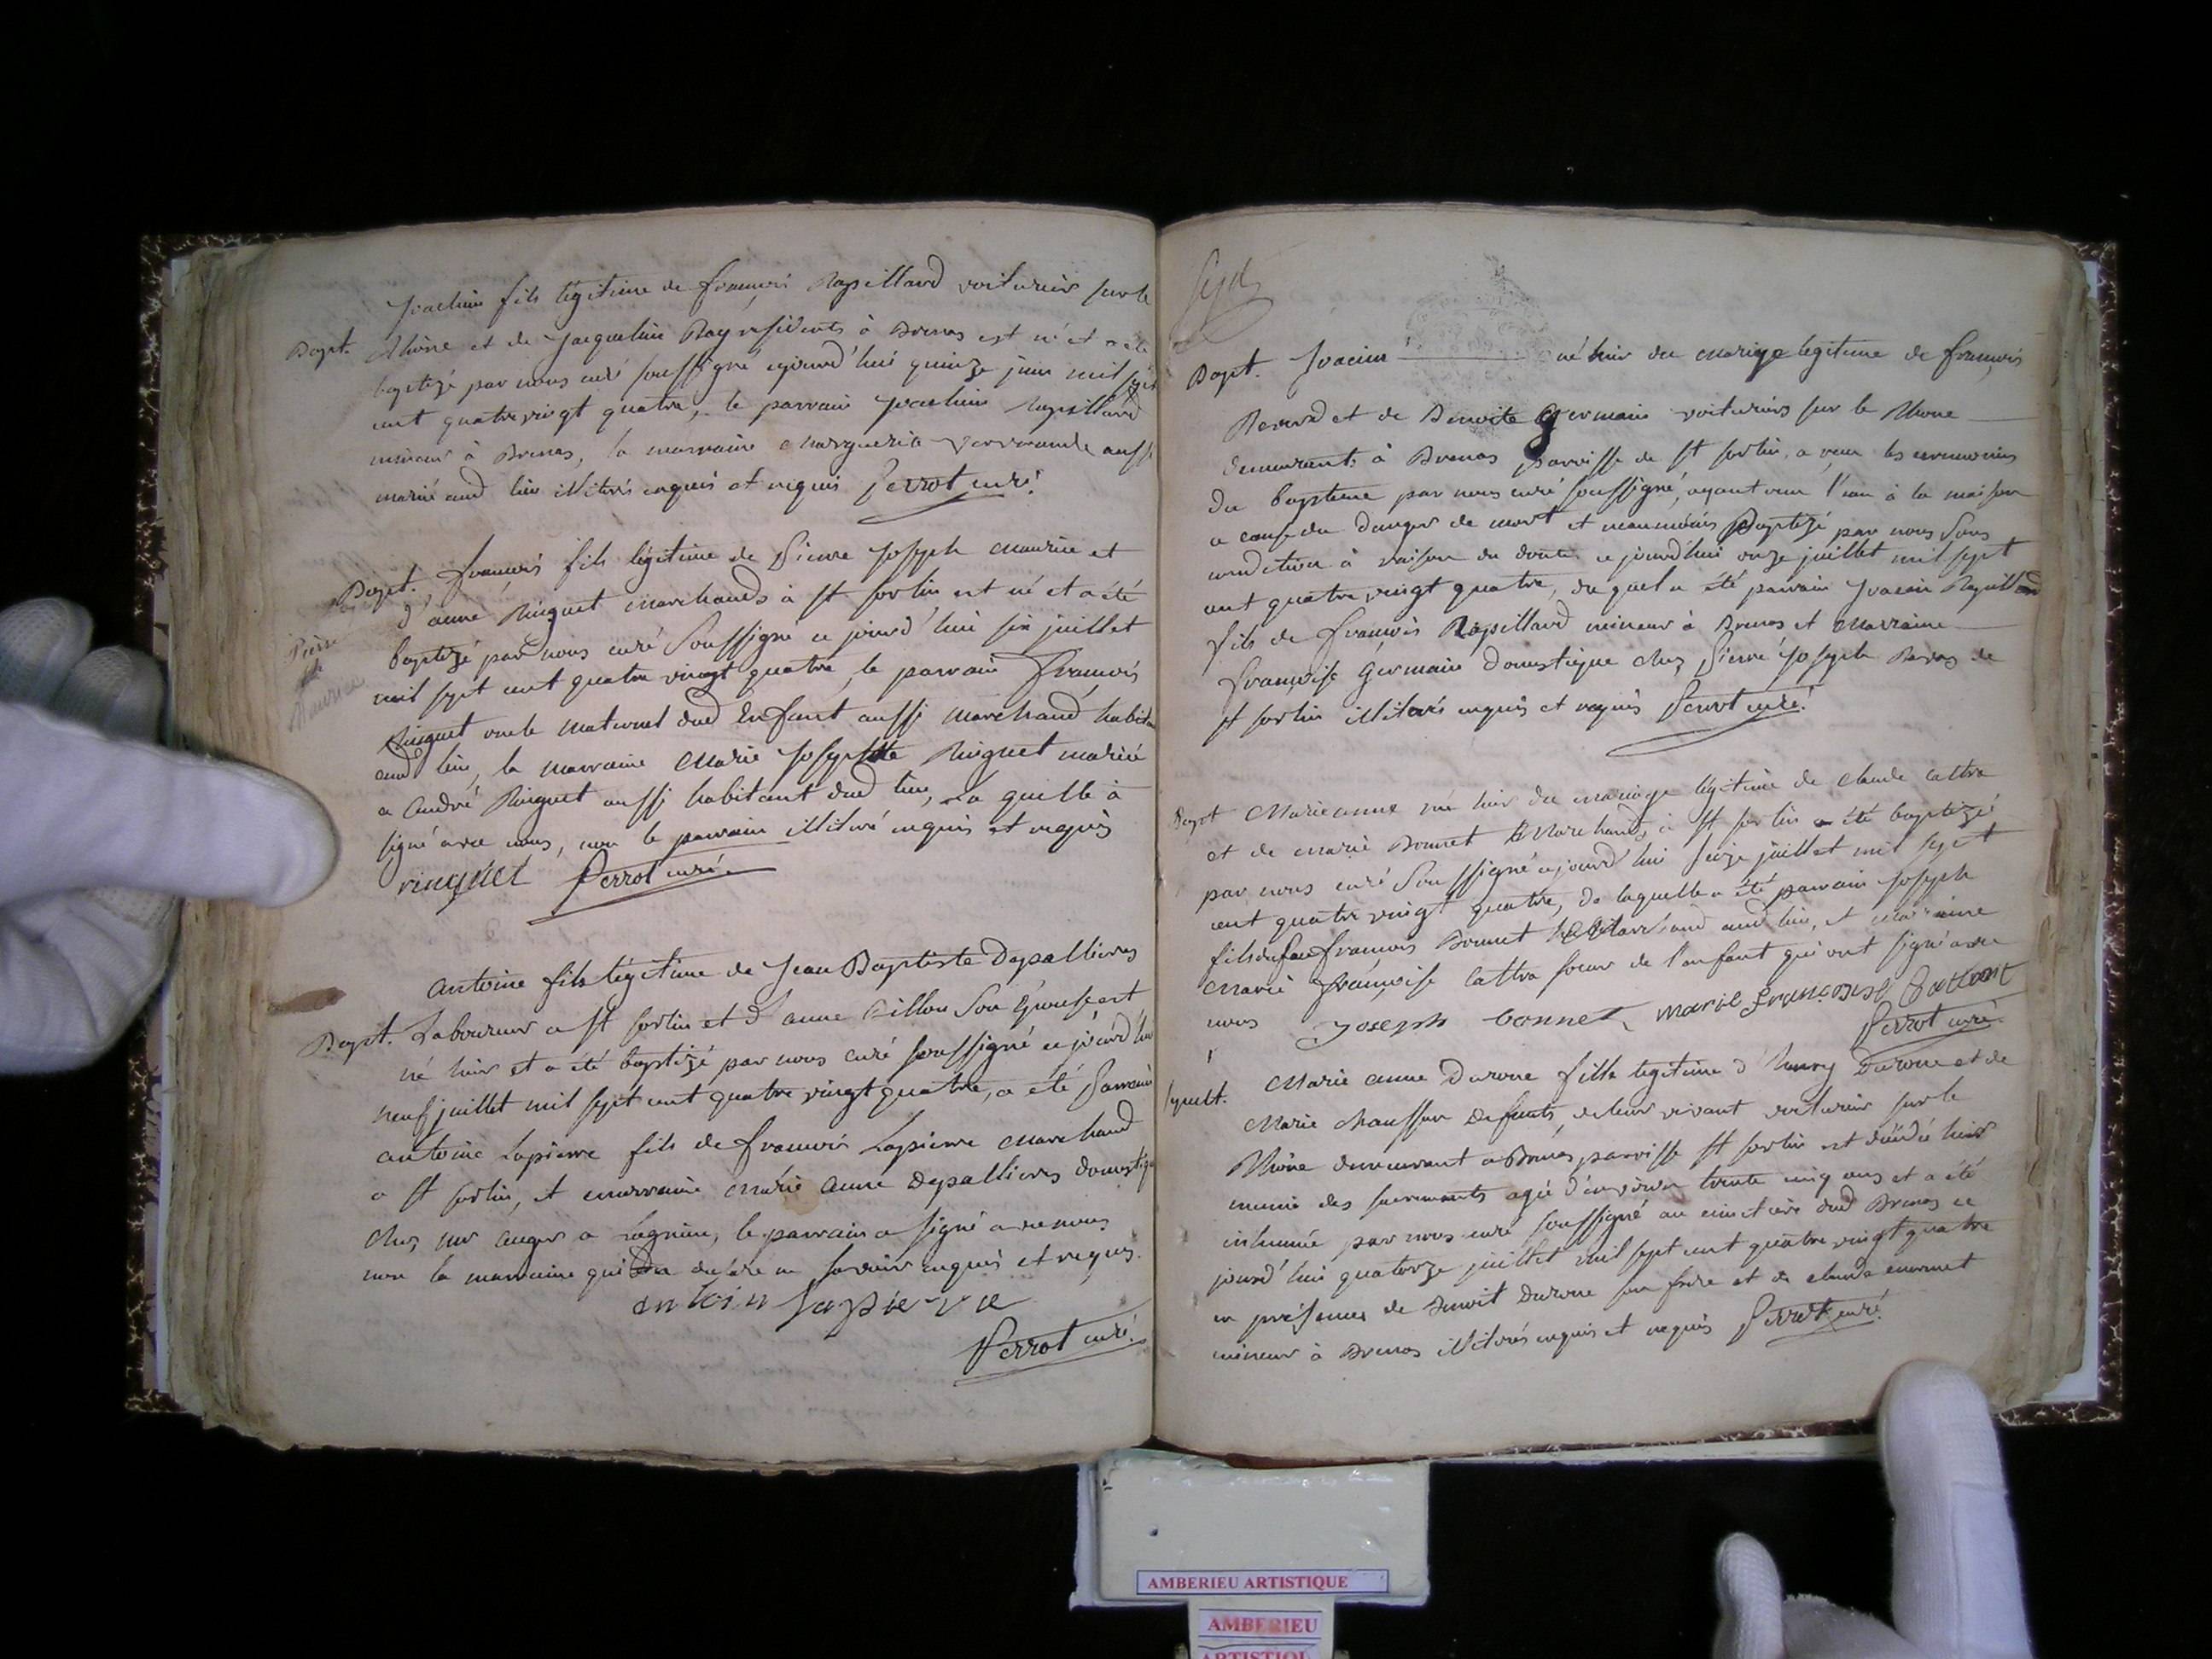 Joachim fils légitime de françois Rapillard voiturier sur le
Bapt. Rhône et de Jacqueline Ray résidents à Brenas est né et a été
baptizé par nous curé soussigné cejourd'hui quinze juin mil sept
cent quatre vingt quatre, le parrain Joachim Rapillard
mineur à Brenas, la marraine Marguerite aussi
mariée aud lieu illiterés enquis et requis Perrot curé.
Bapt. françois fils légitime de Pierre Joseph Maurice et
d'anne Ringuet Marchands à St sorlin est né et a été
Pierre
baptizé par nous curé soussigné ce jourd'hui six juillet
Maurice
mil sept cent quatre vingt quatre, le parrain françois
Ringuet oncle maternel dud Enfant aussi Marchand habitant
aud lieu, la marraine Marie Josephte Ringuet mariée
a André Ringuet aussi habitant dud lieu, La quelle à
signé avec nous, non le parrain illiteré enquis et requis
ringuet Perrot curé.
Antoine fils légitime de Jean Baptiste Depallieres
Bapt. Laboureur a St sorlin et d'anne Billon Son Epouse est
né hier et a été baptizé par nous curé soussigné ce jourd'hui
neuf juillet mil sept cent quatre vingt quatre, a été Parrain
antoine Lapierre fils de françois Lapierre Marchand
a St sorlin, et marraine Marie Anne Depallieres domestique
chez mr auger a Lagnieu, le parrain a signé avec nous
non la marraine qui a declaré ne savoir enquis et requis.
antoin lapierre
Perrot curé.
Bapt. Joacim né hier du mariage légitime de françois
Revard et de Benoite Germain voituriers sur le Rhone
demeurants à Brenas parroisse de St sorlin, a reçu les ceremonies
du baptème par nous curé soussigné, ayant reçu l'eau à la maison
a cause du danger de mort et neanmoins Baptizé par nous sous
condition à raison du doute ce jourd'hui onze juillet mil sept
cent quatre vingt quatre, du quel a été parrain Joacim Rapillard
fils de françois Rapillard mineur à Brenas et Marraine
françoise Germain domestique chez Pierre Joseph de
St sorlin illiterés enquis et requis Perrot curé.
Bapt Marieanne née hier du mariage légitime de claude cattra
et de Marie Bonnet Marchands à St sorlin a été baptizée
par nous curé Soussigné cejourd'hui seize juillet mil sept
cent quatre vingt quatre, de laquelle a été parrain Joseph
fils de feu francois Bonnet Marchand aud lieu, et Marraine
Marie françoise cattra soeur de l'enfant qui ont signé avec
nous Joseph bonnet marie françoise
Perrot curé.
Marie anne Durone fille legitime d'henry Durone et de
sepult. Marie Chausson defunts, de leur vivant voiturier sur le
Rhône demeurant a Brenas parroisse St sorlin est décédée hier
munie des sacrements agée d'environ trente cinq ans et a été
inhumée par nous curé soussigné au cimetière dud Brenas ce
jourd'hui quatorze juillet mil sept cent quatre vingt quatre
en présence de Benoit Durone son frere et de claude
mineur à Brenas illiterés enquis et requis Perrot curé.
AMBERIEU ARTISTIQUE
AMBERIEU
ARTISTIQUE